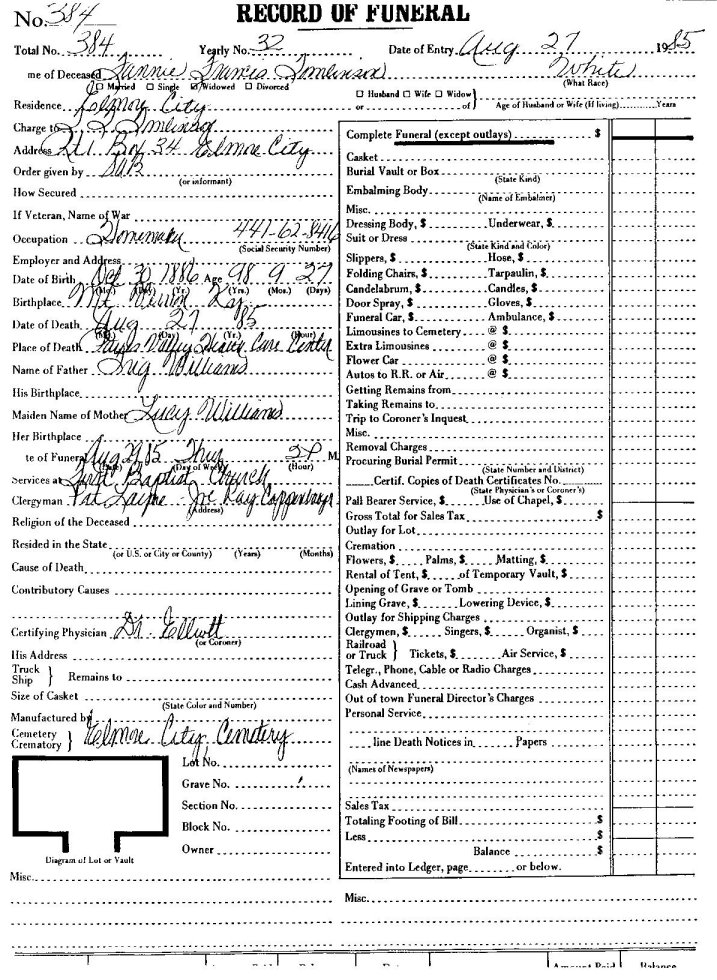 No. 384
RECORD OF FUNERAL
Total No. 384 Yearly No. 32 Date of Entry Aug 27 1985
me of Deceased Fannie Francis Tomlinson White
(What Race)
☐ Married ☐ Single ☑ Widowed ☐ Divorced
☐ Husband ☐ Wife ☐ Widow
or of Age of Husband or Wife (If living) Years
Residence Elmore City
Charge to Tomlinson
Address Rt 1 Box 34 Elmore City
Order given by
(or informant)
How Secured
If Veteran, Name of War
Occupation Homemaker 441-62-8416
(Social Security Number)
Employer and Address
Date of Birth Oct 30 1886 Age 98 9 27
(Mo.) (Day) (Yr.) (Yrs.) (Mos.) (Days)
Birthplace Mt Vernon Ky
Date of Death Aug 27 85
(Mo.) (Da.) (Yr.) (Hour)
Place of Death Pauls Valley Health Care Center
Name of Father Williams
His Birthplace
Maiden Name of Mother Lucy Williams
Her Birthplace
te of Funeral Aug 29 85 Thur 2 P M.
(Date) (Day of Week) (Hour)
Services at First Baptist Church
Clergyman Pat Layne Joe Ray
(Address)
Religion of the Deceased
Resided in the State
(or U.S. or City or County) (Years) (Months)
Cause of Death
Contributory Causes
Certifying Physician Dr. Elliott
(or Coroner)
His Address
Truck
Ship } Remains to
Size of Casket
(State Color and Number)
Manufactured by
Cemetery
Crematory } Elmore City Cemetery
Lot No.
Grave No.
Section No.
Block No.
Owner
Diagram of Lot or Vault
Misc.
Complete Funeral (except outlays) $
Casket
Burial Vault or Box
(State Kind)
Embalming Body
(Name of Embalmer)
Misc.
Dressing Body, $ Underwear, $
Suit or Dress
(State Kind and Color)
Slippers, $ Hose, $
Folding Chairs, $ Tarpaulin, $
Candelabrum, $ Candles, $
Door Spray, $ Gloves, $
Funeral Car, $ Ambulance, $
Limousines to Cemetery @ $
Extra Limousines @ $
Flower Car @ $
Autos to R.R. or Air @ $
Getting Remains from
Taking Remains to
Trip to Coroner's Inquest
Misc.
Removal Charges
Procuring Burial Permit
(State Number and District)
Certif. Copies of Death Certificates No.
(State Physician's or Coroner's)
Pall Bearer Service, $ Use of Chapel, $
Gross Total for Sales Tax $
Outlay for Lot
Cremation
Flowers, $ Palms, $ Matting, $
Rental of Tent, $ of Temporary Vault, $
Opening of Grave or Tomb
Lining Grave, $ Lowering Device, $
Outlay for Shipping Charges
Clergymen, $ Singers, $ Organist, $
Railroad
or Truck } Tickets, $ Air Service, $
Telegr., Phone, Cable or Radio Charges
Cash Advanced
Out of town Funeral Director's Charges
Personal Service
line Death Notices in Papers
(Names of Newspapers)
Sales Tax
Totaling Footing of Bill $
Less $
Balance $
Entered into Ledger, page or below.
Misc.
Amount Paid Balance